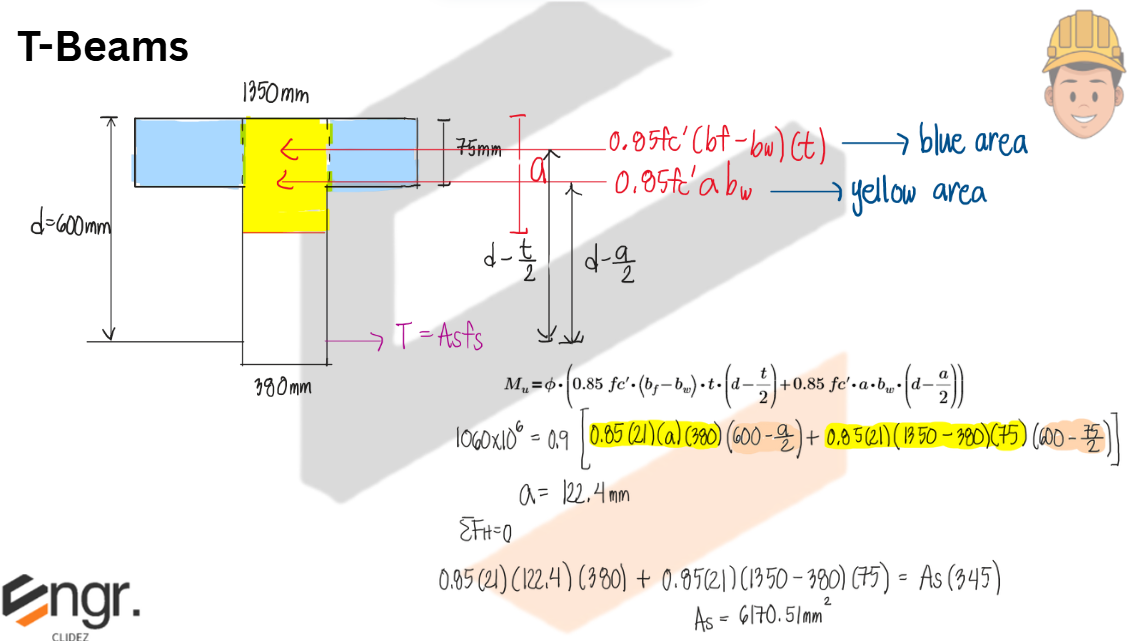 T-Beams
1350mm
75mm
a
0.85fc'(bf-bw)(t) → blue area
0.85fc'a bw → yellow area
d=600mm
d-t/2
d-a/2
T=Asfs
380mm
Mu=ϕ·(0.85 fc'·(bf-bw)·t·(d-t/2)+0.85 fc'·a·bw·(d-a/2))
1060x10⁶ = 0.9 [0.85(21)(a)(380)(600-a/2)+0.85(21)(1350-380)(75)(600-75/2)]
a= 122.4mm
ΣFH=0
0.85(21)(122.4)(380) + 0.85(21)(1350-380)(75) = As(345)
As = 6170.51mm²
Engr.
CLIDEZ